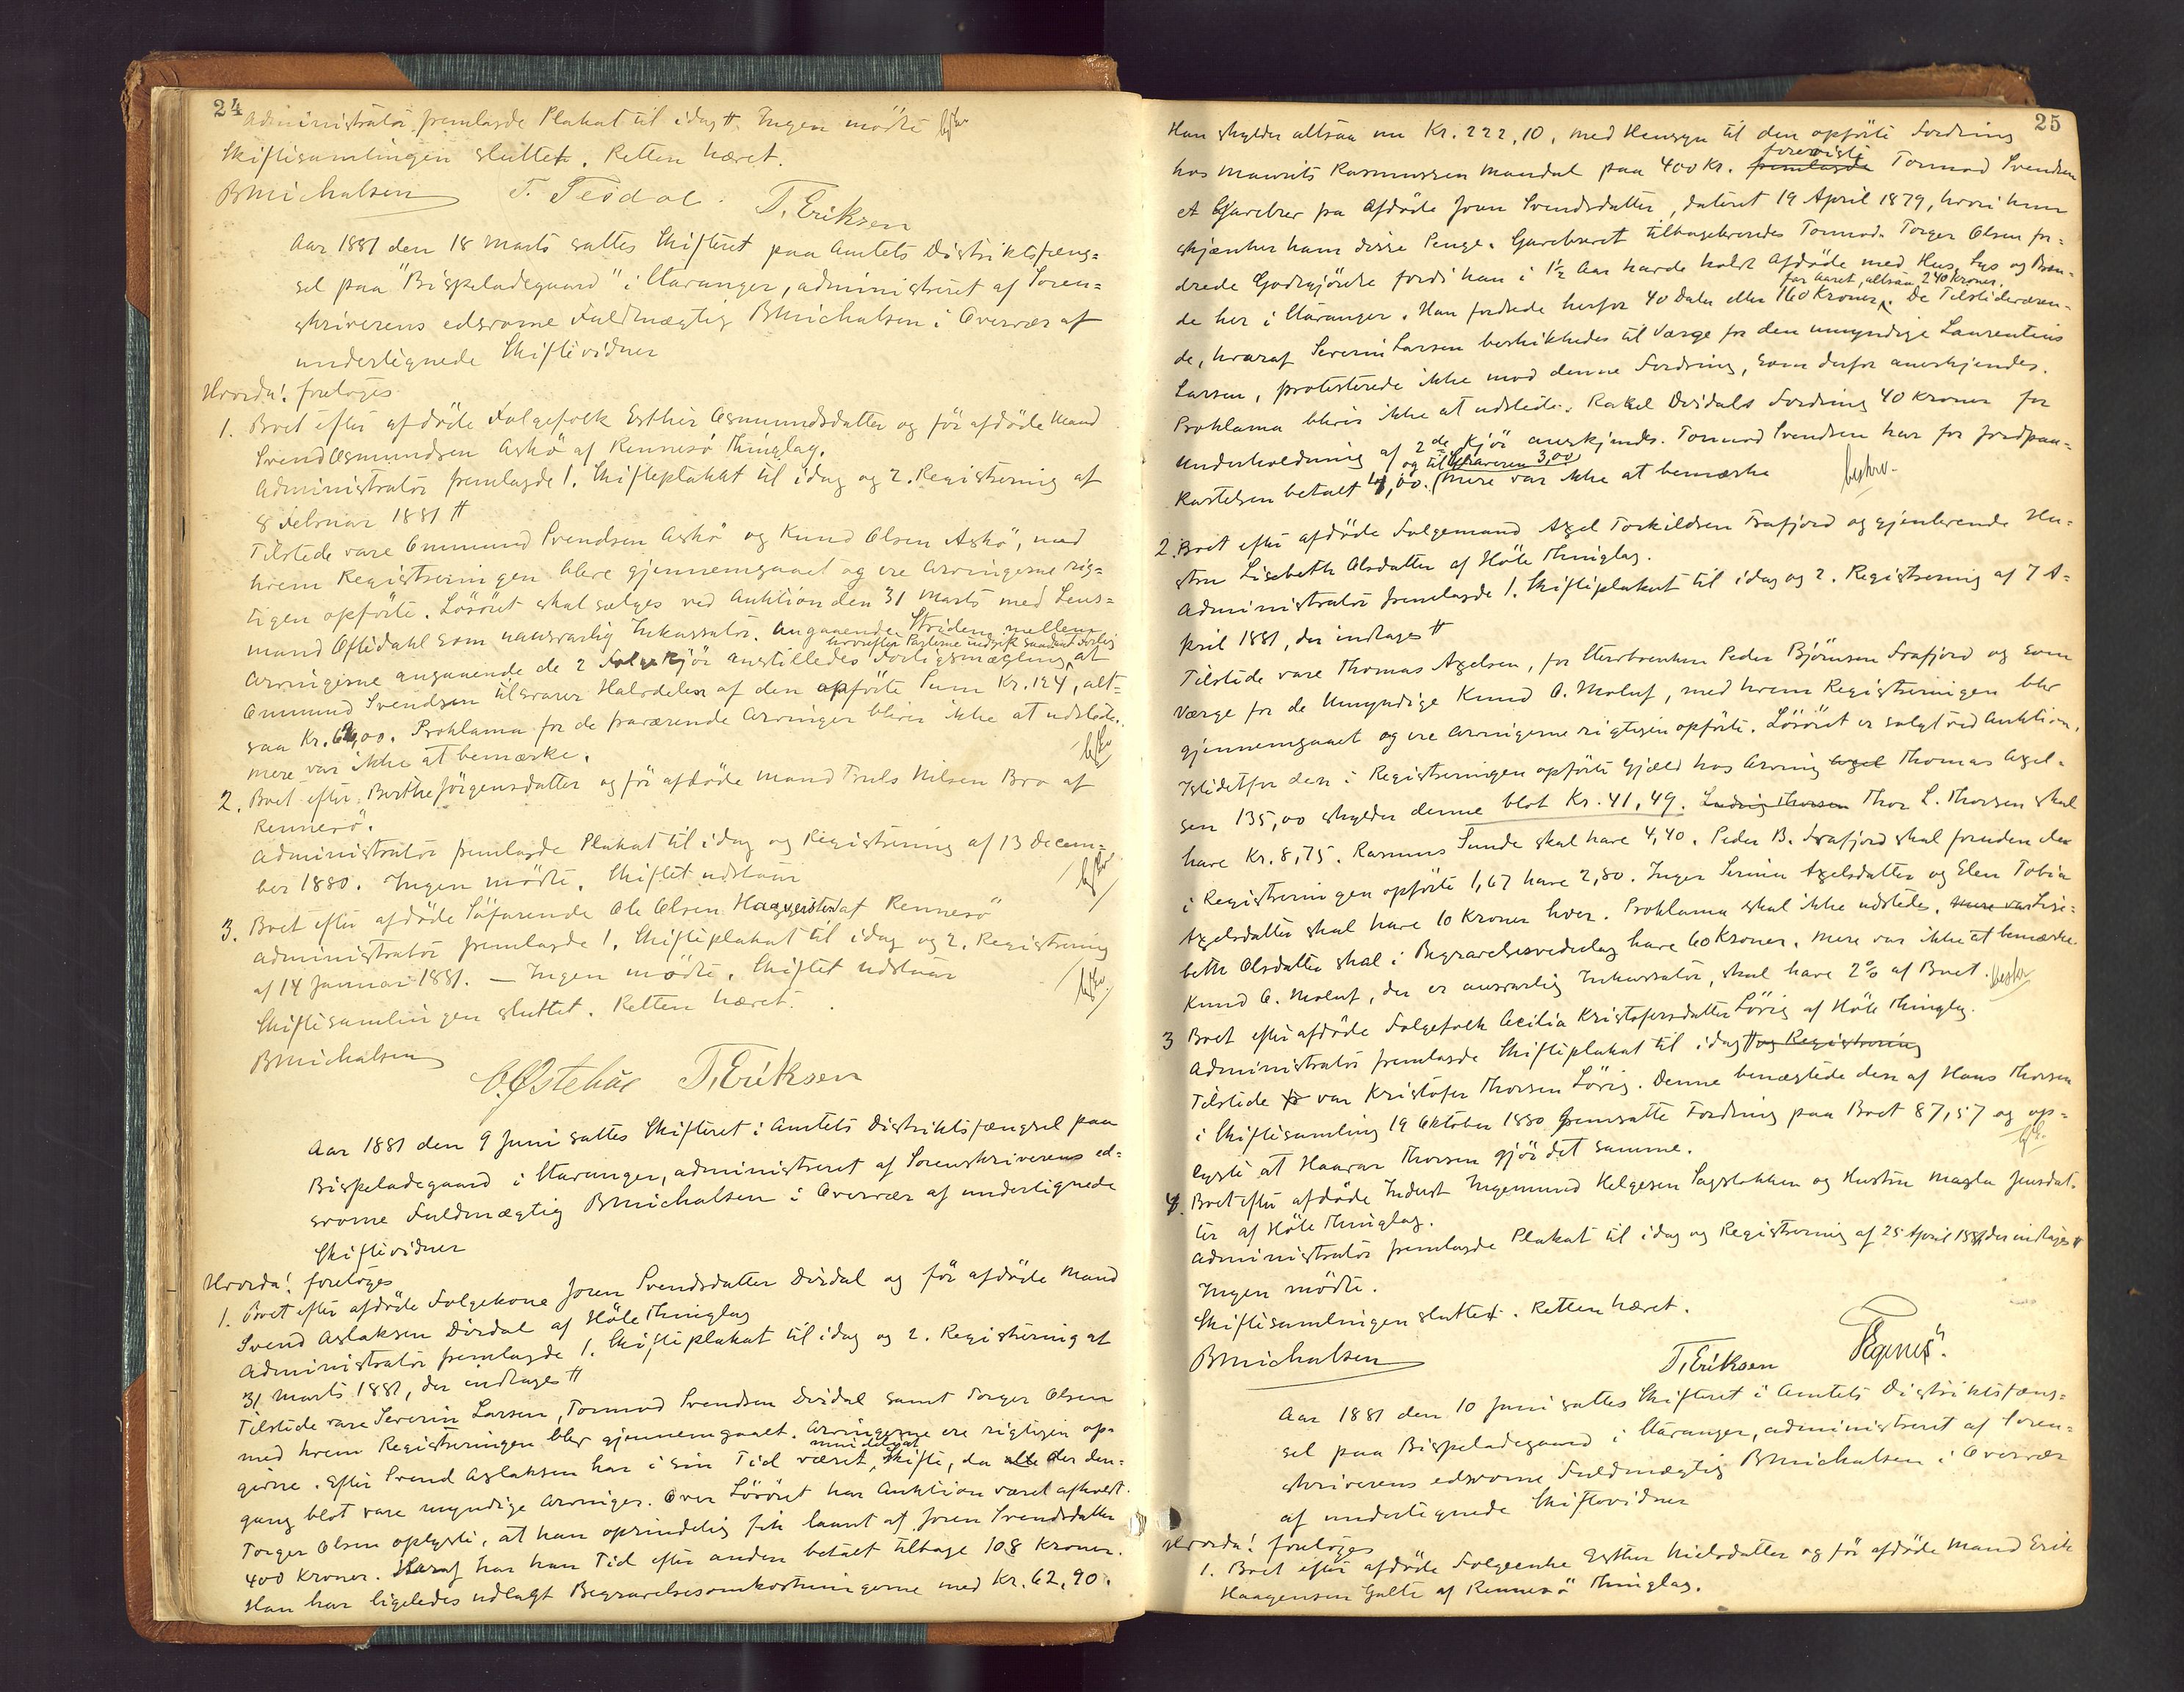 24
Administrator fremlagde Plakat til idag #. Ingen mødte beskr
Skiftesamlingen sluttet. Retten hævet.
BMichalsen T. Tesdal. T. Eriksen
Aar 1881 den 18 Marts sattes Skifteret paa Amtets Distriktsfæng=
sel paa "Bispeladegaard" i Stavanger, administreret af Soren=
skriverens edsvorne Fuldmægtig BMichalsen i Overvær af
undertegnede Skiftevidner
Hvorda! foretoges
1. Boet efter afdøde Folgefolk Esther Osmundsdatter og før afdøde Mand
Svend Osmundsen Askø af Rennesø Thinglag.
Administrator fremlagde 1. Skifteplakat til idag og 2. Registrering af
8 Februar 1881 #
Tilstede vare Ommund Svendsen Askø og Knud Olsen Askø, med
hvem Registreringen blev gjennemgaaet og ere Arvingerne rig=
tigen opførte. Løsøret skal sælges ved Auktion den 31 Marts med Lens=
mand Oftedahl som uansvarlig Inkassator. Angaaende Striden mellem
Arvingerne angaaende de 2 Folgekjør anstilledes Forligsmægling, hvorefter Parterne indgik saadant Forlig at
Ommund Svendsen tilsvarer Halvdelen af den opførte Sum Kr. 124, alt=
saa Kr. 62,00. Proklama for de fraværende Arvinger bliver ikke at udstede.
Mere var ikke at bemærke.
2. Boet efter Berthe Jörgensdatter og før afdøde Mand Truls Nilsen Bro af
Rennesø.
Administrator fremlagde Plakat til idag og Registrering af 13 Decem=
ber 1880. Ingen mødte. Skiftet udstaar
3. Boet efter afdøde Søfarende Ole Olsen af Rennesø
Administrator fremlagde 1. Skifteplakat til idag og 2. Registrering
af 14 Januar 1881. — Ingen mødte. Skiftet udstaar
Skiftesamlingen sluttet. Retten hævet.
BMichalsen
C. Østebøe T. Eriksen
Aar 1881 den 9 Juni sattes Skifteret i Amtets Distriktsfængsel paa
Bispeladegaard i Stavanger, administreret af Sorenskriverens ed=
svorne Fuldmægtig BMichalsen i Overvær af undertegnede
Skiftevidner
Hvorda! foretoges
1. Boet efter afdøde Folgekone Joren Svendsdatter Dirdal og før afdøde Mand
Svend Aslaksen Dirdal af Høle Thinglag
Administrator fremlagde 1. Skifteplakat til idag og 2. Registrering af
31 Marts 1881, der indtages #
Tilstede vare Severin Larsen, Tormod Svendsen Dirdal samt Torger Olsen
med hvem Registreringen blev gjennemgaaet. Arvingerne ere rigtigen op=
givne. Efter Svend Aslaksen har i sin Tid været mindeligt Skifte, da alle der den=
gang blot vare myndige Arvinger. Over Løsøret har Auktion været afholdt.
Torger Olsen oplyste, at han oprindelig fik laant af Joren Svendsdatter
400 Kroner. Heraf har han Tid efter anden betalt tilbage 108 Kroner.
Han har ligeledes udlagt Begravelsesomkostningerne med Kr. 62,90.
25
Han skylder altsaa nu Kr. 222,10. Med Hensyn til den opførte Fordring
hos Maurits Rasmussen Mandal paa 400 Kr. fremlagde foreviste Tormod Svendsen
et Gavebrev fra Afdøde Joren Svendsdatter, dateret 19 April 1879, hvori hun
skjænker ham disse Penge. Gavebrevet tilbageleveredes Tormod. Torger Olsen for=
drede Godtgjørelse fordi han i 1½ Aar havde holdt Afdøde med Hus, Lys og Bræn=
de her i Stavanger. Han fordrede herfor 40 Daler eller 160 Kroner for Aaret, altsaa 240 Kroner. De Tilstedeværen=
de, hvoraf Severin Larsen beskikkedes til Værge for den umyndige Laurentius
Larsen, protesterede ikke mod denne Fordring, som derfor anerkjendes.
Proklama bliver ikke at udstede. Rakel Dirdals Fordring 40 Kroner for
Underholdning af 2de Kjør anerkjendes. Tormod Svendsen har for Jordpaa=
kastelsen betalt 4,00. og til Graveren 3,00 Mere var ikke at bemærke beskrv.
2. Boet efter afdøde Folgemand Axel Torkildsen Frafjord og gjenlevende Hu=
stru Lisebeth Olsdatter af Høle Thinglag.
Administrator fremlagde 1. Skifteplakat til idag og 2. Registrering af 7 A=
pril 1881, der indtages #
Tilstede vare Thomas Axelsen, for Peder Björnsen Frafjord og som
Værge for de Umyndige Knud O. Moluf, med hvem Registreringen blev
gjennemgaaet og ere Arvingerne rigtigen opførte. Løsøret er solgt ved Auktion.
Istedetfor den i Registreringen opførte Gjæld hos Arving Axel Thomas Axel=
sen 135,00 skylder denne blot Kr. 41,49. Ludvig Thorsen Thor L. Thorsen skal
have Kr. 8,75. Rasmus Sunde skal have 4,40. Peder B. Frafjord skal foruden den
i Registreringen opførte 1,67 have 2,80. Inger Serine Axelsdatter og Elen Tobia
Axelsdatter skal have 10 Kroner hver. Proklama skal ikke udstedes. Mere var Lise=
beth Olsdatter skal i Begravelsesvederlag have 60 Kroner. Mere var ikke at bemærke.
Knud O. Moluf, der er ansvarlig Inkassator, skal have 2% af Boet. beskr
3 Boet efter afdøde Folgefolk Cecilia Kristofersdatter Løvig af Høle Thinglag.
Administrator fremlagde Skifteplakat til idag # og Registrering
Tilstede var Kristofer Thorsen Løvig. Denne benægtede den af Hans Thorsen
i Skiftesamling 19 Oktober 1880 fremsatte Fordring paa Boet 87,57 og op=
lyste at Haavar Thorsen gjør det samme.
4. Boet efter afdøde Inderst Ingemund Helgesen Sagslokken og Hustru Magla Jensdat=
ter af Høle Thinglag.
Administrator fremlagde Plakat til idag og Registrering af 25 April 1881, der indtages #
Ingen mødte.
Skiftesamlingen sluttet. Retten hævet.
BMichalsen T. Eriksen
Aar 1881 den 10 Juni sattes Skifteret i Amtets Distriktsfæng=
sel paa Bispeladegaard i Stavanger, administreret af Soren=
skriverens edsvorne Fuldmægtig BMichalsen i Overvær
af undertegnede Skiftevidner
Hvorda! foretoges
1. Boet efter afdøde Folgeenke Esther Nielsdatter og før afdøde Mand Erik
Haagensen Galte af Rennesø Thinglag.